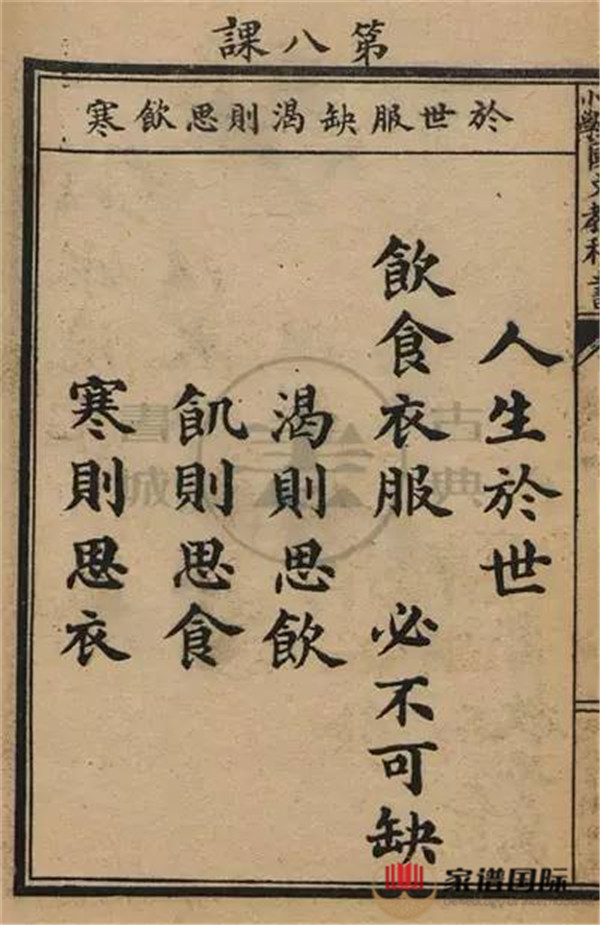 第八課
於世服缺渴則思飲寒
人生於世
飲食衣服 必不可缺
渴則思飲
飢則思食
寒則思衣
小學國文教科書
古典
書城
家谱国际